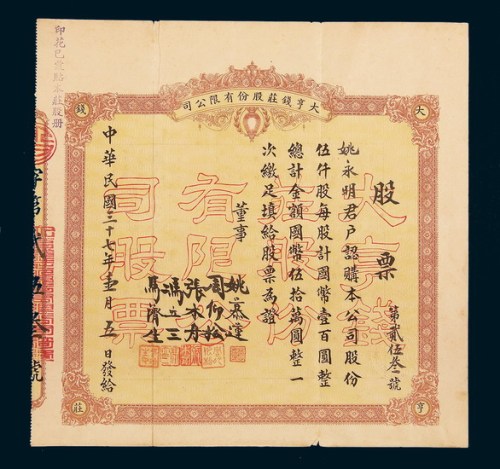 大亨錢莊股份有限公司
大
亨
錢
莊
股票
第貳伍叁號
姚永明君戶認購本公司股份
伍仟股每股計國幣壹百圓整
總計金額國幣伍拾萬圓整一
次繳足填給股票為證
董事
姚慕蓮
周仰松
張
馮立三
馬濟生
中華民國三十七年壹月五日發給
大亨錢
莊股份
有限公
司股票
印花已彙貼本莊股册
字第貳伍叁號